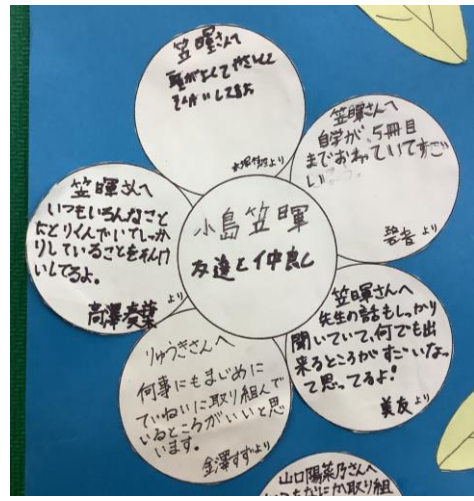 笠暉さんへ
頭がよくてやさしくて
そんけいしてるよ
より
笠暉さんへ
自学が、5冊目
までおわっていてすご
い
碧音より
小島笠暉
友達と仲良し
笠暉さんへ
いつもいろんなこと
にとりくんでいてしっか
りしていることをそんけ
いしてるよ。
高澤奏葉より
笠暉さんへ
先生の話もしっかり
聞いていて、何でも出
来るところがすごいなっ
て思ってるよ!
美友より
りゅうきさんへ
何事にもまじめに
ていねいに取り組んで
いるところがいいと思
います。
金澤すずより
山口陽菜乃さんへ
なにか取り組